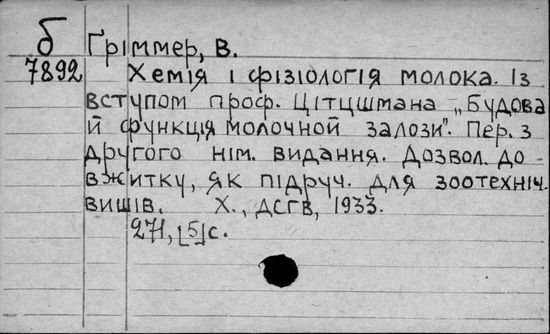 б Ґріммер, В.
7892 Хемія і фізіологія молока. Із
вступом проф. Цітцшмана „Будова
й функція молочной залози". Пер. з
другого нім. видання. Дозвол. до
вжитку, як підруч. для зоотехніч.
вишів. Х., ДСГВ, 1933.
271, [5] с.